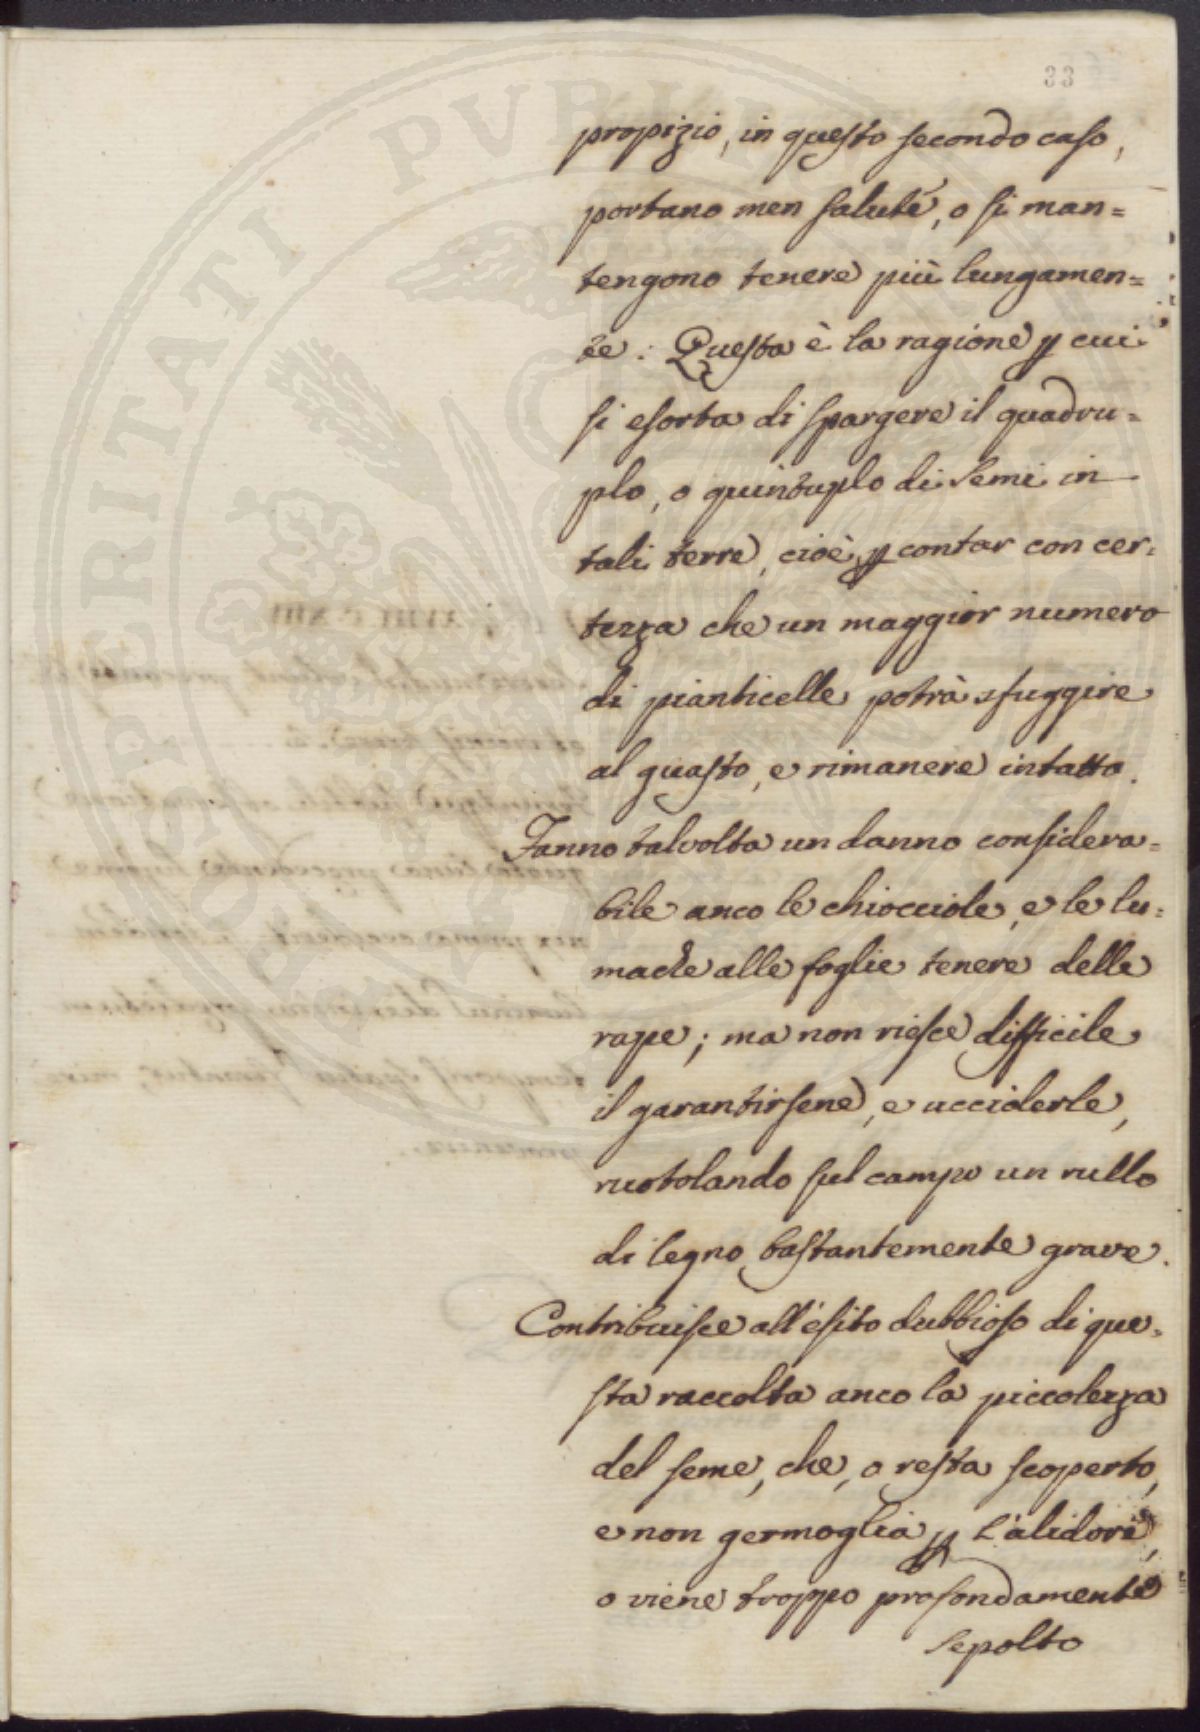 33
propizio, in questo secondo caso,
portano men salute, o si man=
tengono tenere più lungamen=
te. Questa è la ragione p cui
si esorta di spargere il quadru=
plo, o quintuplo di semi in
tali terre, cioè p contar con cer=
tezza che un maggior numero
di pianticelle potrà sfuggire
al guasto, e rimanere intatto.
Fanno talvolta un danno considera=
bile anco le chiocciole, e le lu=
mache alle foglie tenere delle
rape; ma non riesce difficile
il garantirsene, e ucciderle,
ruotolando sul campo un rullo
di legno bastantemente grave.
Contribuisce all'esito dubbioso di que=
sta raccolta anco la piccolezza
del seme, che, o resta scoperto,
e non germoglia p l'alidore,
o viene troppo profondamente
sepolto
PROSPERITATI PUBLI